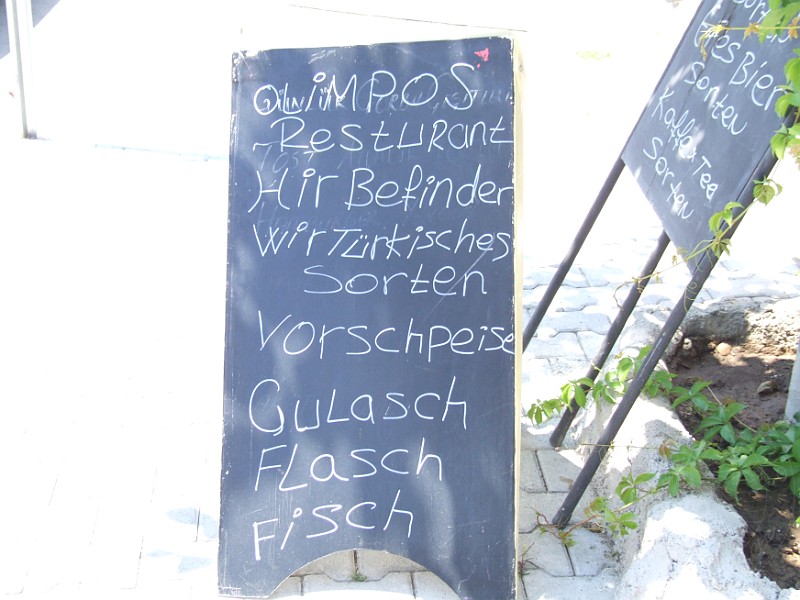 OLiMPOS
Resturant
Hir Befinder
Wir Türkisches
Sorten
Vorschpeise
Gulasch
Flasch
Fisch
Bier
Sorten
Kaffa Tea
Sorten